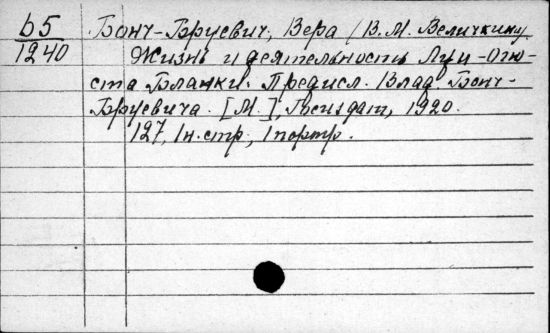 b5
1240
Бонч-Бруевич, Вера /В.М. Величкину/
Жизнь и деятельность Луи-Огю-
ста Бланки. Предисл. Влад. Бонч-
Бруевича. [М.], Госиздат, 1920.
127, 1 н. стр., 1 портр.